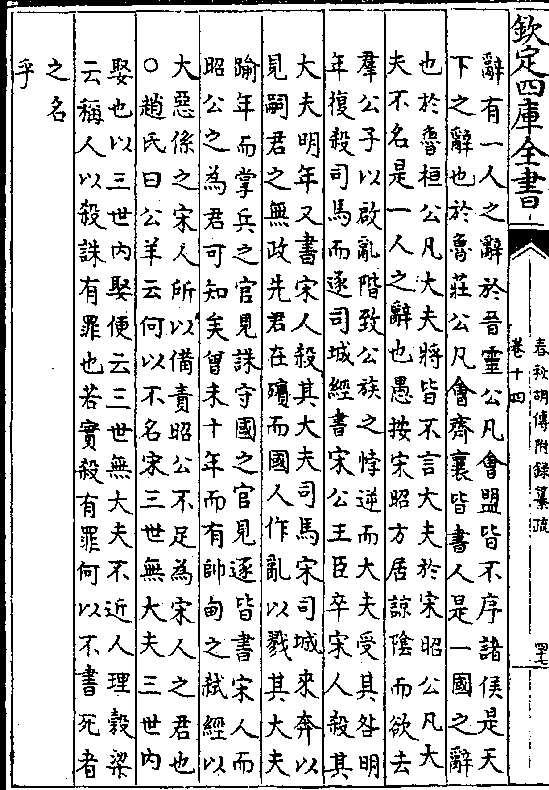 欽定四庫全書
春秋胡傳附錄纂疏
卷十四
四七
辭有一人之辭於晉靈公凡會盟皆不序諸侯是天
下之辭也於魯莊公凡會齊襄皆書人是一國之辭
也於魯桓公凡大夫將皆不言大夫於宋昭公凡大
夫不名是一人之辭也愚按宋昭方居諒陰而欲去
羣公子以啟亂階致公族之悖逆而大夫受其咎明
年復殺司馬而逐司城經書宋公王臣卒宋人殺其
大夫明年又書宋人殺其大夫司馬宋司城來奔以
見嗣君之無政先君在殯而國人作亂以戮其大夫
踰年而掌兵之官見誅守國之官見逐皆書宋人而
昭公之為君可知矣曾未十年而有帥甸之弑經以
大惡係之宋人所以備責昭公不足為宋人之君也
○趙氏曰公羊云何以不名宋三世無大夫三世内
娶也以三世内娶便云三世無大夫不近人理穀梁
云稱人以殺誅有罪也若實殺有罪何以不書死者
之名
乎